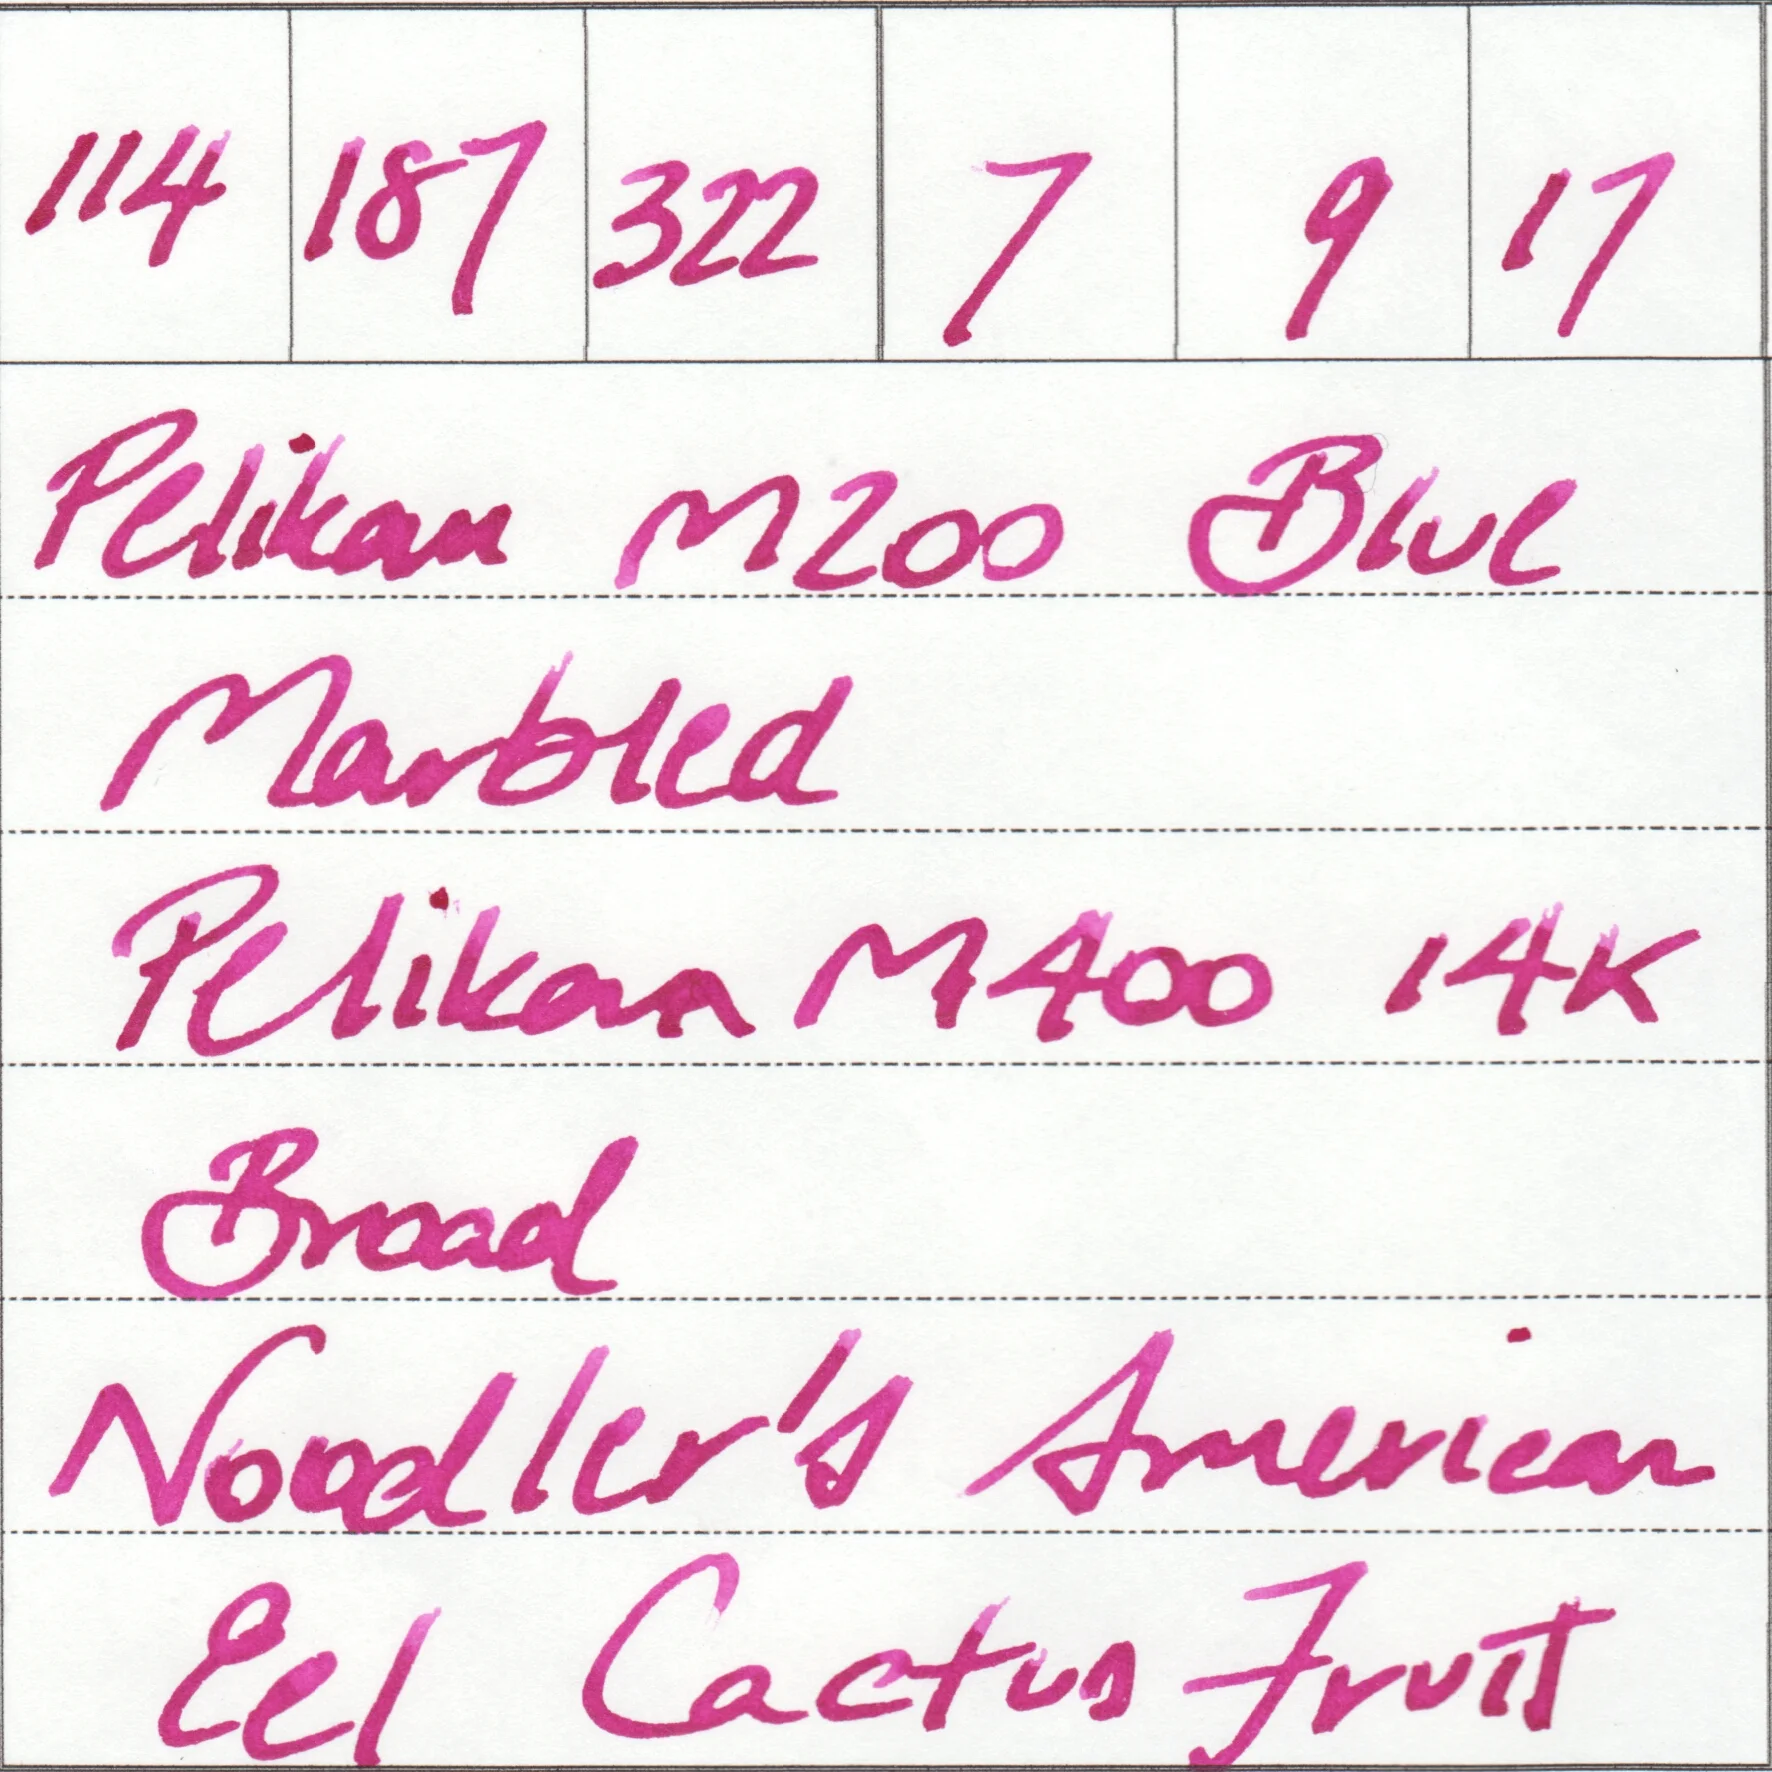 114 187 322 7 9 17
Pelikan M200 Blue
Marbled
Pelikan M400 14K
Broad
Noodler's American
Eel Cactus Fruit